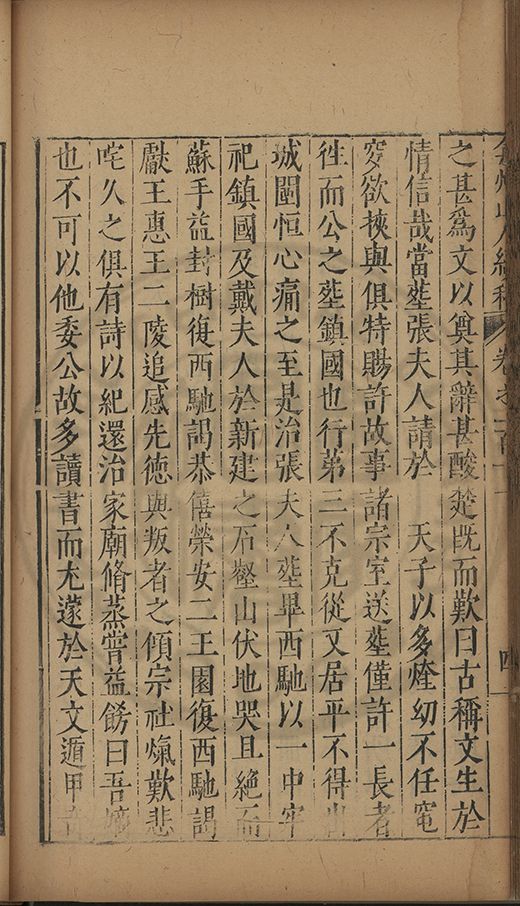 弇州山人續稿 卷之一百十一 四
之甚爲文以奠其辭甚酸楚既而歎曰古稱文生於
情信哉當塟張夫人請於 天子以多煃幼不任窀
穸欲挾與俱特賜許故事諸宗室送塟僅許一長者
徃而公之塟鎮國也行第三不克從又居平不得出
城圍恒心痛之至是治張夫人塟畢西馳以一中牢
祀鎮國及戴夫人於新建之石壑山伏地哭且絶而
蘇手益封樹復西馳謁恭僖榮安二王園復西馳謁
獻王惠王二陵追感先德與叛者之傾宗社煼歎悲
咤久之俱有詩以紀還治家廟脩蒸嘗益餝曰吾嫡
也不可以他委公故多讀書而尤邃於天文遁甲音